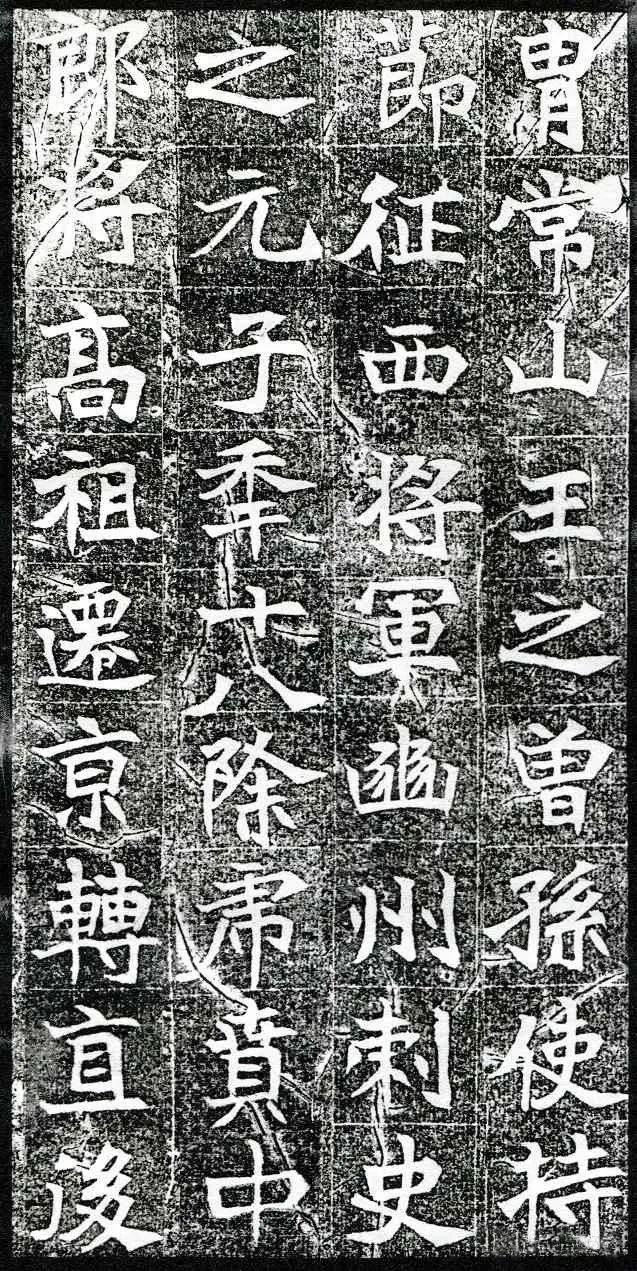 胄常山王之曾孫使持
節征西將軍幽州刺史
之元子秊廿八除虎賁中
郎將高祖遷京轉直後